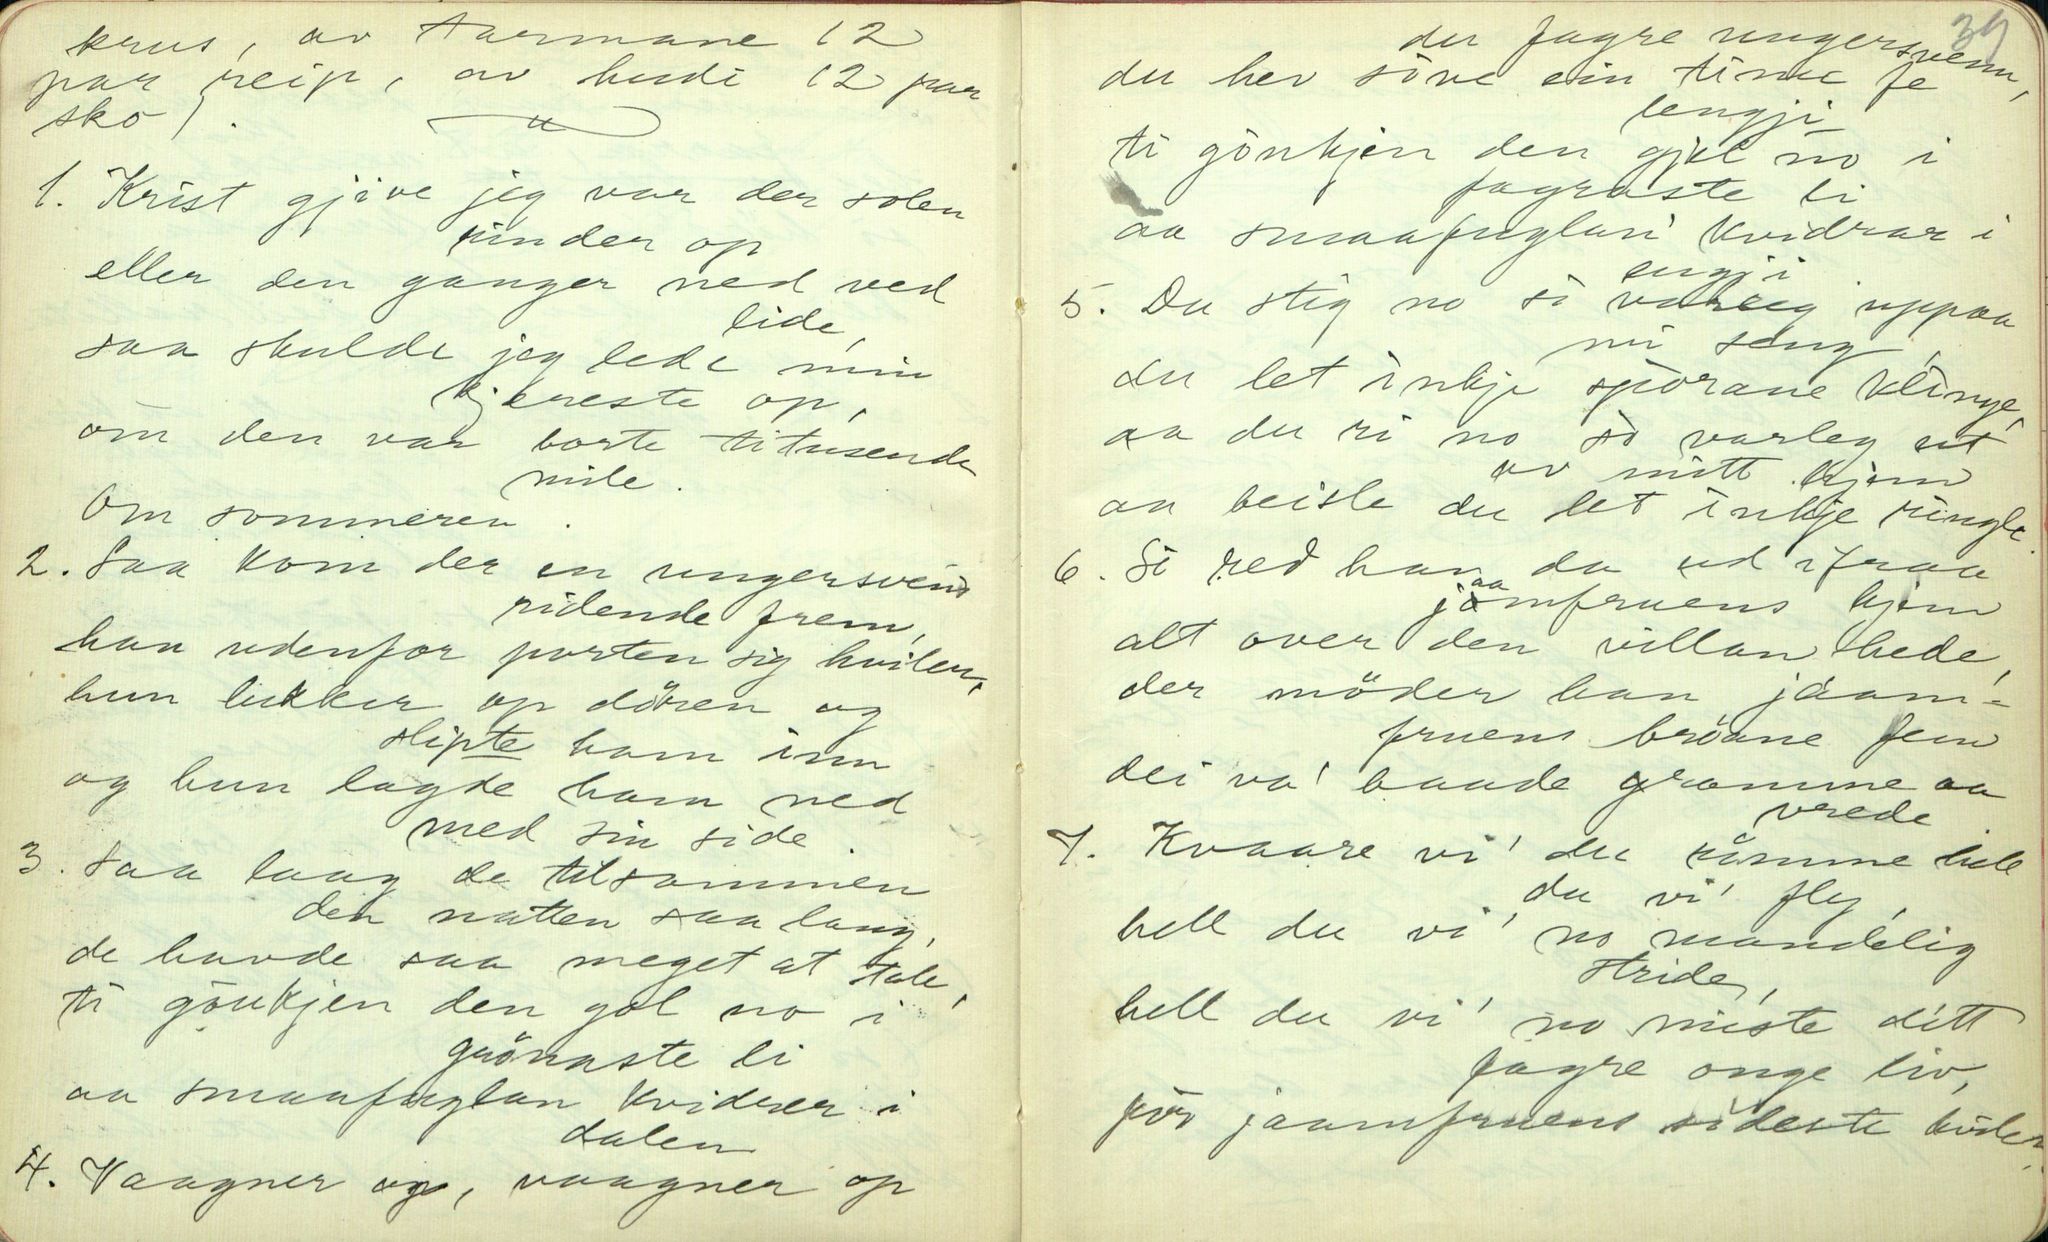 krus, av tarmane 12
par reip, av hudi 12 par
sko).
1. Krist gjive jeg var der solen
rinder op
eller den ganger ned ved
lide,
saa skulde jeg lede min
kjereste op,
om den var borte titusende
mile.
Om sommeren.
2. Saa kom der en ungersvend
ridende frem,
han udenfor porten sig hviler,
hun lukker op dören og
slipte ham inn
og hun lagde ham ned
med sin side.
3. Saa laag de tilsammen
den natten saa lang,
de havde saa meget at tale,
ti gönkjen den gol no i
grönaste li
aa smaafuglan kvidrer i
dalen
4. Vaagner op, vaagner op
39
du fagre ungersvenn,
du hev söve ein time fe
lengji
ti gönkjen den gjel no i
fagraste li
aa smaafuglan' kvidrar i
engji
5. Du stig no so varleg uppaa
mi seng,
du let inkje sporane klinge,
aa du ri no so varleg ut
av mitt hjem
aa beisle du let inkje ringle.
6. So red han da ud ifraa
jaamfruens hjem
alt over den villan hede,
der möder han jaam-
fruens bröane fem
dei va' baade gramme aa
vrede.
7. Kvaare vi' du römme hell
du vi' fly,
hell du vi' no mandelig
stride,
hell du vi' no miste ditt
fagre onge liv,
för jaamfruens södeste